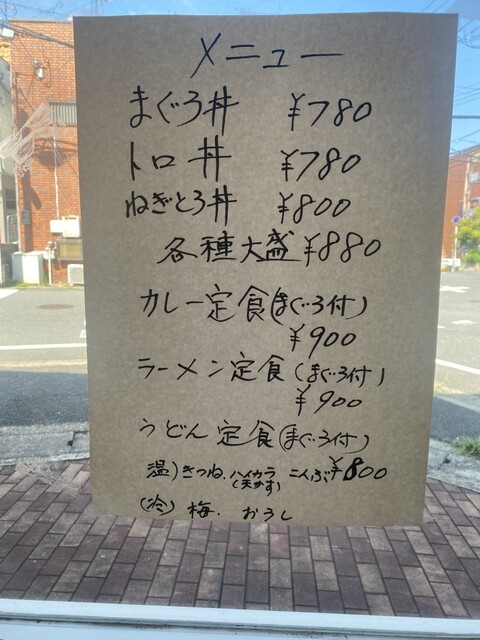 メニュー
まぐろ丼 ¥780
トロ丼 ¥780
ねぎとろ丼 ¥800
各種大盛 ¥880
カレー定食(まぐろ付)
¥900
ラーメン定食(まぐろ付)
¥900
うどん定食(まぐろ付)
温)きつね、ハイカラ(天かす) こんぶ ¥800
(冷) 梅、おろし